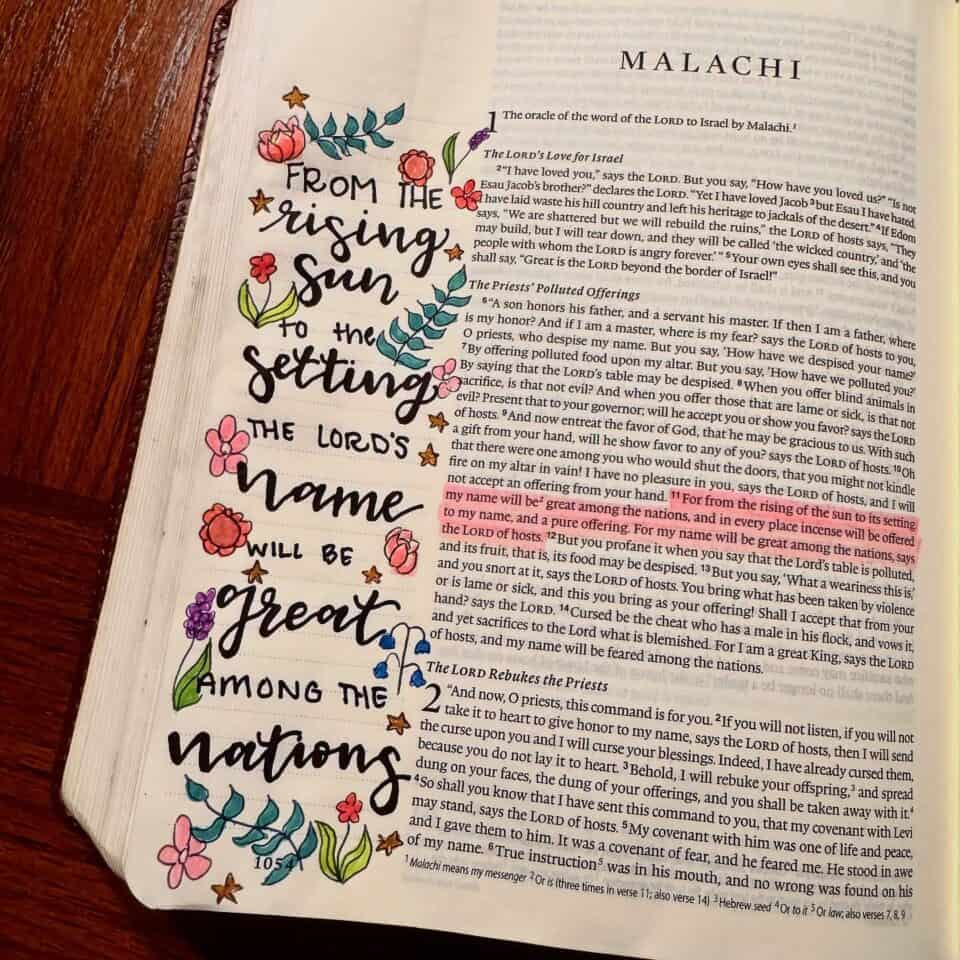 FROM THE
rising
sun
to the
setting
THE LORD'S
name
WILL BE
great
AMONG THE
nations
1054
MALACHI
1 The oracle of the word of the LORD to Israel by Malachi.1
The LORD's Love for Israel
2"I have loved you," says the LORD. But you say, "How have you loved us?" "Is not
Esau Jacob's brother?" declares the LORD. "Yet I have loved Jacob 3but Esau I have hated.
I have laid waste his hill country and left his heritage to jackals of the desert." 4If Edom
says, "We are shattered but we will rebuild the ruins," the LORD of hosts says, "They
may build, but I will tear down, and they will be called 'the wicked country,' and 'the
people with whom the LORD is angry forever.'" 5Your own eyes shall see this, and you
shall say, "Great is the LORD beyond the border of Israel!"
The Priests' Polluted Offerings
6"A son honors his father, and a servant his master. If then I am a father, where
is my honor? And if I am a master, where is my fear? says the LORD of hosts to you,
O priests, who despise my name. But you say, 'How have we despised your name?'
7By offering polluted food upon my altar. But you say, 'How have we polluted you?'
By saying that the LORD's table may be despised. 8When you offer blind animals in
sacrifice, is that not evil? And when you offer those that are lame or sick, is that not
evil? Present that to your governor; will he accept you or show you favor? says the LORD
of hosts. 9And now entreat the favor of God, that he may be gracious to us. With such
a gift from your hand, will he show favor to any of you? says the LORD of hosts. 10Oh
that there were one among you who would shut the doors, that you might not kindle
fire on my altar in vain! I have no pleasure in you, says the LORD of hosts, and I will
not accept an offering from your hand. 11For from the rising of the sun to its setting
my name will be2 great among the nations, and in every place incense will be offered
to my name, and a pure offering. For my name will be great among the nations, says
the LORD of hosts. 12But you profane it when you say that the Lord's table is polluted,
and its fruit, that is, its food may be despised. 13But you say, 'What a weariness this is,'
and you snort at it, says the LORD of hosts. You bring what has been taken by violence
or is lame or sick, and this you bring as your offering! Shall I accept that from your
hand? says the LORD. 14Cursed be the cheat who has a male in his flock, and vows it,
and yet sacrifices to the Lord what is blemished. For I am a great King, says the LORD
of hosts, and my name will be feared among the nations.
The LORD Rebukes the Priests
2 "And now, O priests, this command is for you. 2If you will not listen, if you will not
take it to heart to give honor to my name, says the LORD of hosts, then I will send
the curse upon you and I will curse your blessings. Indeed, I have already cursed them,
because you do not lay it to heart. 3Behold, I will rebuke your offspring,3 and spread
dung on your faces, the dung of your offerings, and you shall be taken away with it.4
4So shall you know that I have sent this command to you, that my covenant with Levi
may stand, says the LORD of hosts. 5My covenant with him was one of life and peace,
and I gave them to him. It was a covenant of fear, and he feared me. He stood in awe
of my name. 6True instruction5 was in his mouth, and no wrong was found on his
1 Malachi means my messenger 2 Or is (three times in verse 11; also verse 14) 3 Hebrew seed 4 Or to it 5 Or law; also verses 7, 8, 9